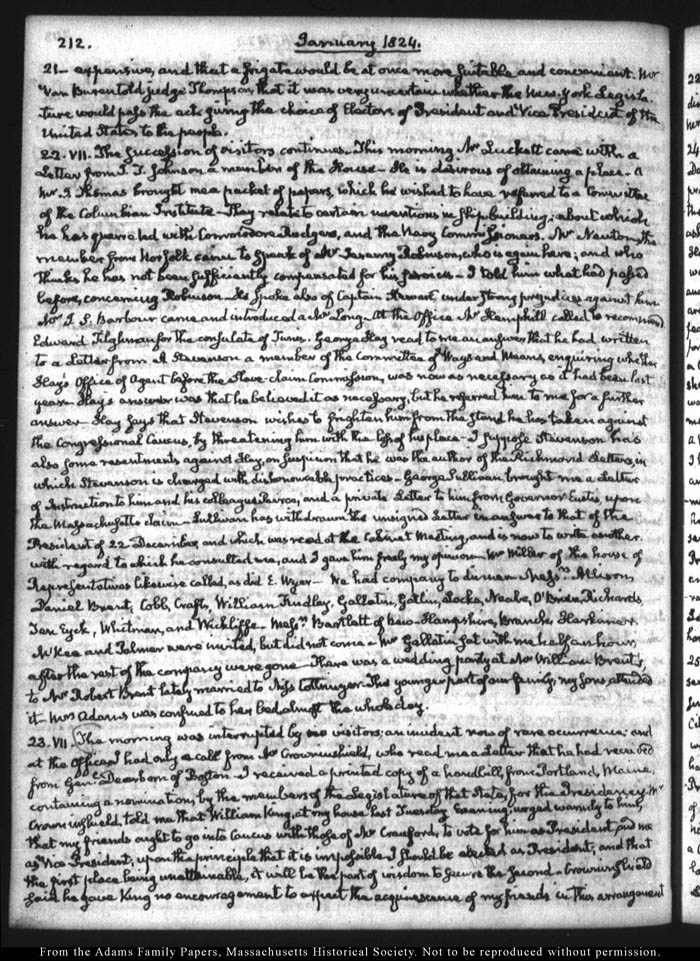 212.
January 1824.
21— expensive, and that a frigate would be at once more suitable and convenient. Mr
Van Buren told judge Thompson, that it was very uncertain whether the New-York Legisla-
ture would pass the act, giving the choice of Electors of President and Vice President of the
United States to the people.
22. VII. The succession of visitors continues. This morning Mr Luckett came with a
Letter from J. T. Johnson a member of the House— He is desirous of obtaining a place. A
Mr. J. Thomas brought me a packet of papers, which he wished to have referred to a Committee
of the Columbian Institute— They relate to certain inventions in Ship-building; about which
he has quarreled with Commodore Rodgers, and the Navy Commissioners. Mr Newton, the
member from Norfolk came to speak of Mr Jeremy Robinson, who is again here; and who
thinks he has not been sufficiently compensated for his services— I told him what had passed
before, concerning Robinson— He spoke also of Captain Stewart, under strong prejudices against him.
Mr J. S. Barbour came and introduced a Mr Long. At the Office Mr Hemphill called to recommend
Edward Tilghman for the Consulate of Tunis. George Hay read to me an answer that he had written
to a Letter from A. Stevenson a member of the Committee of Ways and Means, enquiring whether
Hay's Office of Agent before the Slave-claim Commission, was now as necessary as it had been last
year— Hay's answer was that he believed it as necessary, but he referred him to me for a further
answer— Hay says that Stevenson wishes to frighten him from the stand he has taken against
the Congressional Caucus, by threatening him with the loss of his place— I suppose Stevenson has
also some resentments against Hay, on suspicion that he was the author of the Richmond Letters, in
which Stevenson is charged with dishonourable practices— George Sullivan, brought me a Letter
of Instruction to him and his colleague Pearce, and a private Letter to him from Governor Eustis, upon
the Massachusetts claim— Sullivan has withdrawn the unsigned Letter in answer to that of the
President of 22 December, and which was read at the Cabinet Meeting, and is now to write another.
with regard to which he consulted me, and I gave him freely my opinion— Mr Wilder of the house of
Representatives likewise called, as did E. Wyer— We had company to dinner— Messrs. Allison,
Daniel Brent, Cobb, Crafts, William Findlay, Gallatin, Gatlin, Locke, Neale, O'Brien, Richards,
Ten Eyck, Whitman, and Wickliffe— Messrs. Bartlett of New-Hampshire, Branch, Herkimer,
McKee and Palmer were invited, but did not come— Mr Gallatin sat with me half an hour,
after the rest of the company were gone— There was a wedding party at Mr William Brent's,
to Mr Robert Brent lately married to Miss . The younger part of our family, my Sons attended
it— Mrs Adams was confined to her bed almost the whole day.
23. VII. The morning was interrupted by no visitors; an incident now of rare occurrence; and
at the Office, I had only a call from Mr Crowninshield, who read me a Letter that he had received
from Genl. Dearborn of Boston— I received a printed copy of a handbill, from Portland, Maine,
containing a nomination, by the members of the Legislature of that State, for the Presidency. Mr
Crowninshield, told me that William King, at my house last Tuesday Evening, urged warmly to him,
that my friends ought to go into Caucus with those of Mr Crawford, to vote for him as President, and me
as Vice President, upon the principle that it is impossible I should be elected as President; and that
the first place being unattainable, it will be the part of wisdom to secure the second— Crowninshield
said he gave King no encouragement to expect the acquiescence of my friends in this arrangement
From the Adams Family Papers, Massachusetts Historical Society. Not to be reproduced without permission.